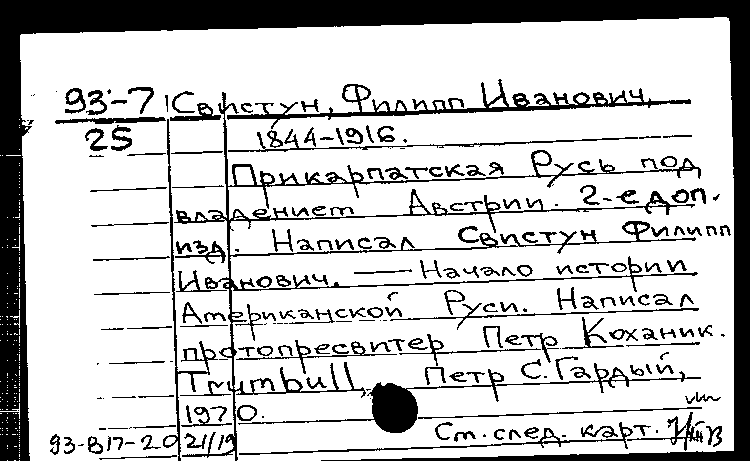 93-7 Свистун, Филипп Иванович,
25 1844-1916.
Прикарпатская Русь под
владением Австрии. 2-е доп.
изд. Написал Свистун Филипп
Иванович. — Начало истории
Американской Руси. Написал
протопресвитер Петр Коханик.
Trumbull, Петр С. Гардый,
1970.
93-В17-20 21/19 См. след. карт.